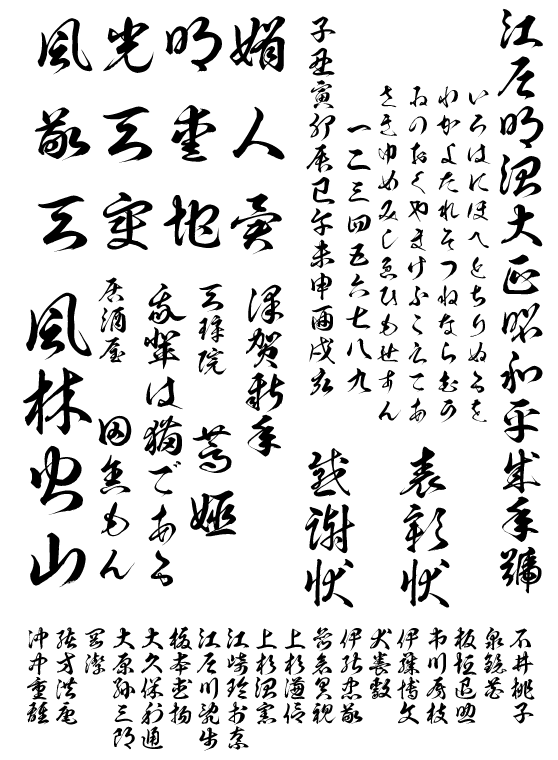 江戸明治大正昭和平成年號
いろはにほへとちりぬるを
わかよたれそつねならむう
ゐのおくやまけふこえてあ
さきゆめみしゑひもせすん
一二三四五六七八九
子丑寅卯辰巳午未申酉戌亥
表彰状
感謝状
風光明媚
敬天愛人
天変地異
謹賀新年
天璋院
篤姫
我輩は猫である
居酒屋
田舎もん
風林火山
石井桃子
泉鏡花
板垣退助
市川房枝
伊藤博文
犬養毅
伊能忠敬
岩倉具視
上杉謙信
上杉治憲
江崎玲於奈
江戸川乱歩
榎本武揚
大久保利通
大原孫三郎
岡潔
緒方洪庵
沖中重雄